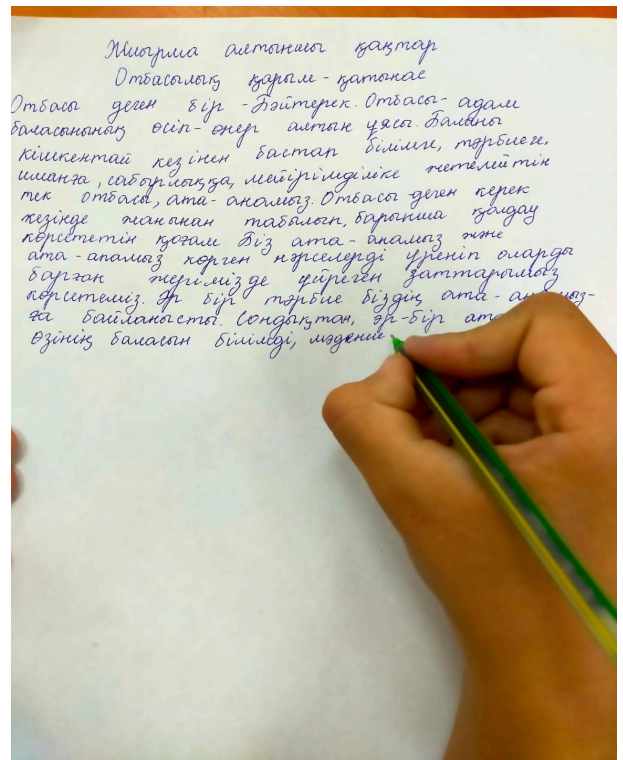 Жиырма алтыншы қаңтар
Отбасылық қарым-қатынас
Отбасы деген бір - Бәйтерек. Отбасы - адам
баласынының өсіп-өнер алтын ұясы. Баланы
кішкентай кезінен бастап білімге, тәрбиеге,
иманға, сабырлыққа, мейірімділіке жетелейтін
тек отбасы, ата-анамыз. Отбасы деген керек
кезінде жанынан табылып, барынша қолдау
көрсететін қоғам. Біз ата-анамыз және
ата-апамыз көрген нәрселерді үреніп оларды
барған жерімізде үйреген заттарымыз
көрсетеміз. Әр бір тәрбие біздің ата-анамыз-
ға байланысты. Сондықтан, әр-бір ата
өзінің баласын білімді, мәдение